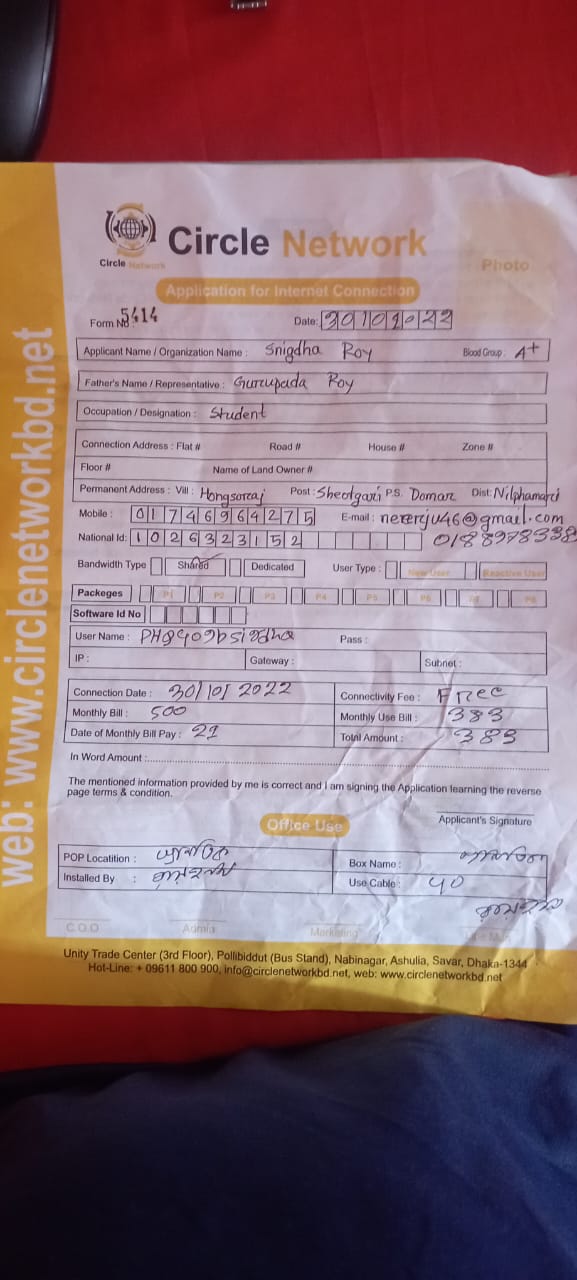 Circle Network
Circle Network
Photo
Application for Internet Connection
Form No 5414
Date: 30102022
Applicant Name / Organization Name : Snigdha Roy Blood Group : A+
Father's Name / Representative : Gurupada Roy
Occupation / Designation : Student
Connection Address : Flat # Road # House # Zone #
Floor # Name of Land Owner #
Permanent Address : Vill : Hongsoraj Post : Sheotgari P.S. Domar Dist: Nilphamari
Mobile : 01746964275 E-mail : @gmail.com
National Id: 1026323152
Bandwidth Type Shared Dedicated User Type : New User Reactive User
Packeges P1 P2 P3 P4 P5 P6 P7 P8
Software Id No
User Name : Pass :
IP : Gateway : Subnet :
Connection Date : 30/10/2022 Connectivity Fee : Free
Monthly Bill : 500 Monthly Use Bill : 383
Date of Monthly Bill Pay : 21 Total Amount : 383
In Word Amount :
The mentioned information provided by me is correct and I am signing the Application learning the reverse
page terms & condition.
Applicant's Signature
Office Use
POP Locatition : Box Name :
Installed By : Use Cable : 40
C.O.O Admin Marketing
Unity Trade Center (3rd Floor), Pollibiddut (Bus Stand), Nabinagar, Ashulia, Savar, Dhaka-1344
Hot-Line: + 09611 800 900, info@circlenetworkbd.net, web: www.circlenetworkbd.net
web: www.circlenetworkbd.net